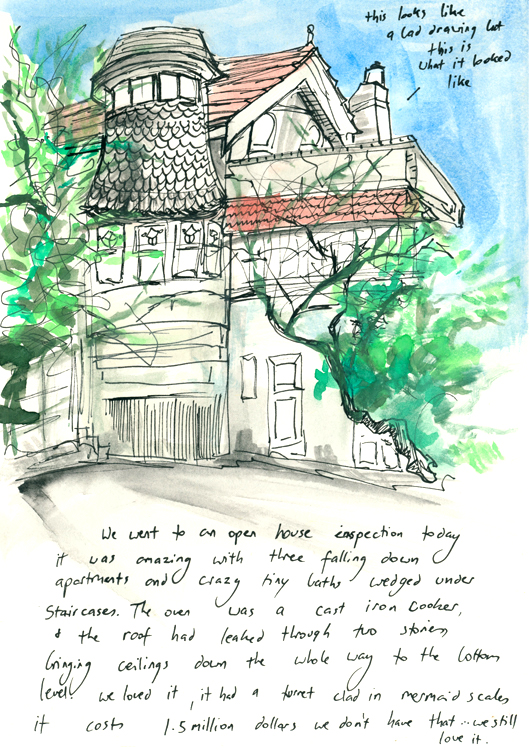 this looks like
a bad drawing but
this is
what it looked
like
We went to an open house inspection today
it was amazing with three falling down
apartments and crazy tiny baths wedged under
Staircases. The oven was a cast iron Cooker,
& the roof had leaked through two stories
bringing ceilings down the whole way to the bottom
level! we loved it, it had a turret clad in mermaid scales
it costs 1.5 million dollars we don't have that... we still
love it.